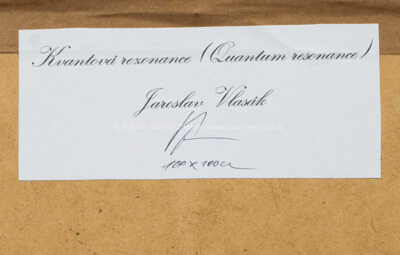 Kvantová rezonance (Quantum resonance)
Jaroslav Vlasák
100 x 100 cm